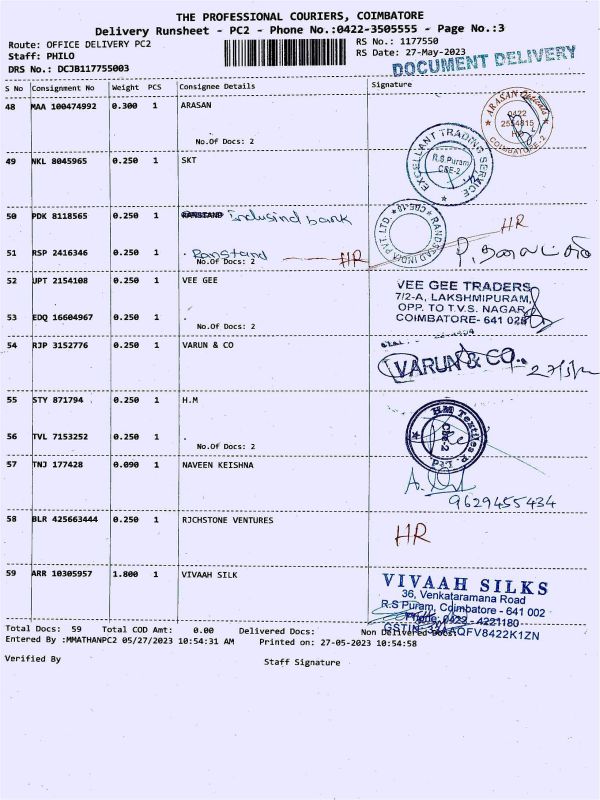 THE PROFESSIONAL COURIERS, COIMBATORE
Delivery Runsheet - PC2 - Phone No.:0422-3505555 - Page No.:3
Route: OFFICE DELIVERY PC2
RS No.: 1177550
Staff: PHILO
RS Date: 27-May-2023
DRS No.: DCJB117755003
DOCUMENT DELIVERY
S No Consignment No Weight PCS Consignee Details Signature
48 MAA 100474992 0.300 1 ARASAN
ARASAN
0422
2554815
COIMBATORE-2
No.Of Docs: 2
49 NKL 8045965 0.250 1 SKT
EXCELLANT TRADING SERVICE
R.S.Puram
CBE-2
50 PDK 8118565 0.250 1 RANSTAND Indusind bank
RANDSTAD INDIA PVT. LTD. CBE-18
HR
51 RSP 2416346 0.250 1 Ranstand HR
No.Of Docs: 2
52 UPT 2154108 0.250 1 VEE GEE
VEE GEE TRADERS
7/2-A, LAKSHMIPURAM,
OPP. TO T.V.S. NAGAR
COIMBATORE- 641 025
53 EDQ 16604967 0.250 1
No.Of Docs: 2
54 RJP 3152776 0.250 1 VARUN & CO
VARUN & CO.,
55 STY 871794 0.250 1 H.M
HM Textiles P. Ltd.
Cbe-2
56 TVL 7153252 0.250 1
No.Of Docs: 2
57 TNJ 177428 0.090 1 NAVEEN KEISHNA
9629455434
58 BLR 425663444 0.250 1 RJCHSTONE VENTURES
HR
59 ARR 10305957 1.800 1 VIVAAH SILK
VIVAAH SILKS
36, Venkataramana Road
R.S Puram, Coimbatore - 641 002
Phone: 0422 - 4221180
GSTIN: 33AAQFV8422K1ZN
Total Docs: 59 Total COD Amt: 0.00 Delivered Docs: Non Delivered Docs:
Entered By :MMATHANPC2 05/27/2023 10:54:31 AM Printed on: 27-05-2023 10:54:58
Verified By Staff Signature